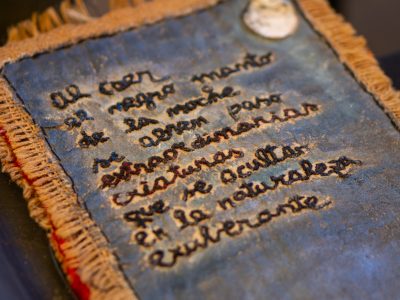 al caer
el negro manto
de la noche
se abren paso
extraordinarias
criaturas
que se ocultan
en la naturaleza
exuberante.